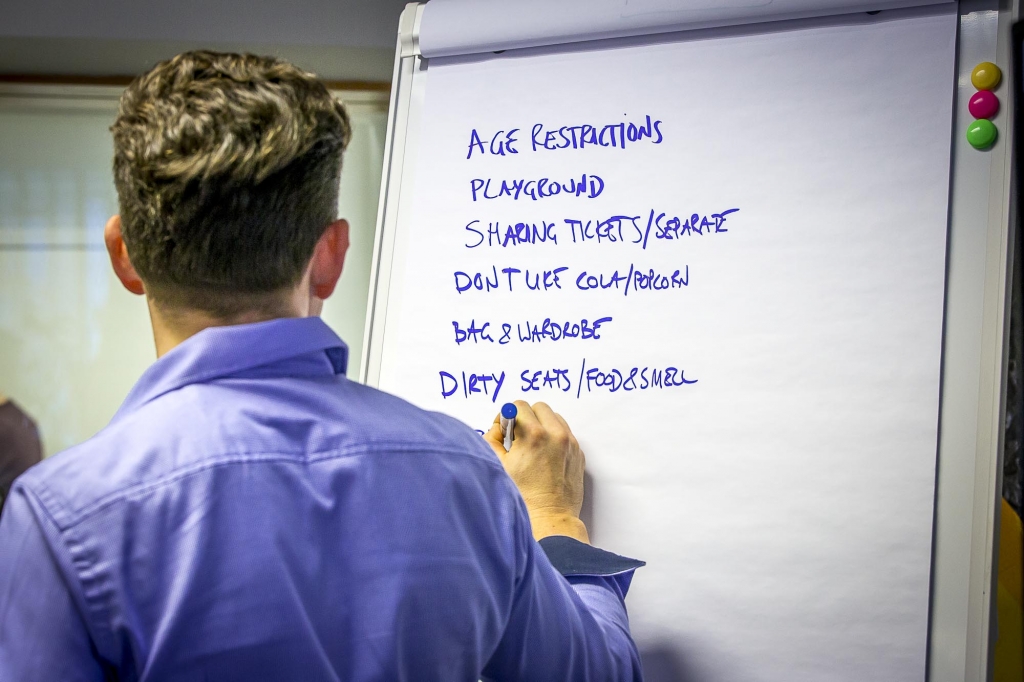 AGE RESTRICTIONS
PLAYGROUND
SHARING TICKETS/SEPARATE
DON'T LIKE COLA/POPCORN
BAG & WARDROBE
DIRTY SEATS/FOOD&SMELL